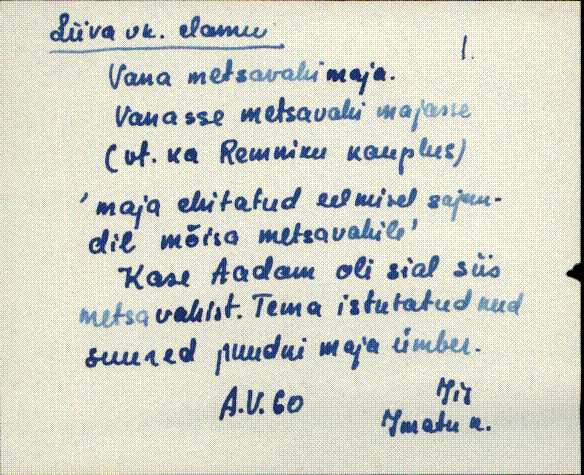 Liiva vk. elamu
1.
Vana metsavahi maja.
Vanasse metsavahi majasse
(vt. ka Remniku kauplus)
'maja ehitatud eelmisel sajan-
dil mõisa metsavahile'
Kase Aadam oli sial siis
metsavahist. Tema istutatud nud
suured puudki maja ümber.
A.V. 60
Iis
Imatu k.